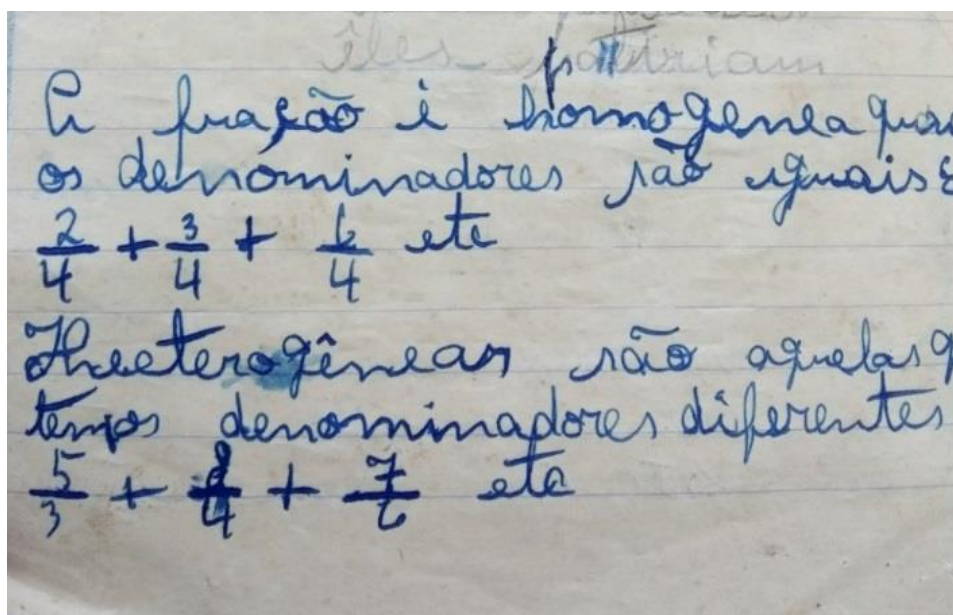 êles partiriam
A fração é homogenea
os denominadores são iguais
2/4 + 3/4 + 6/4 etc
Heeterogêneas são aquelas q
temos denominadores diferentes
5/3 + /4 + 7/6 etc